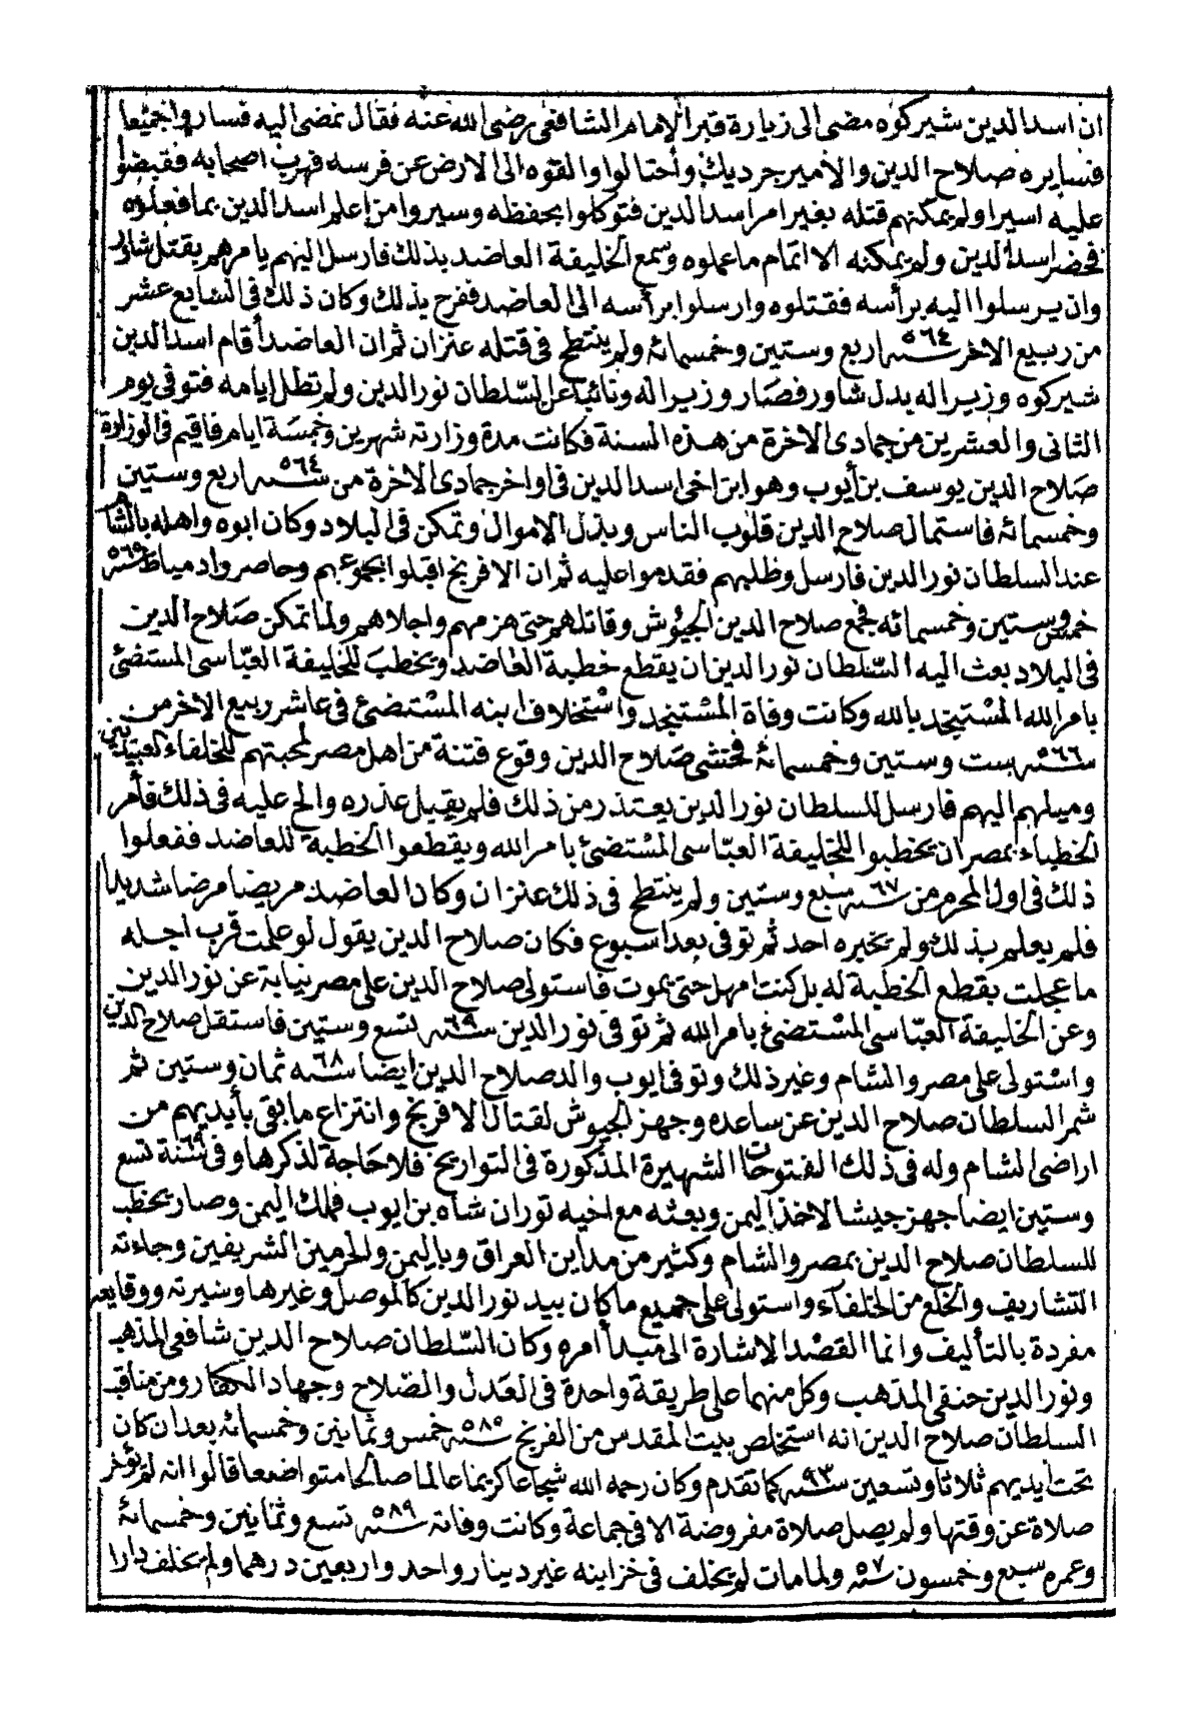 ان اسد الدين شيركوه مضى الى زيارة قبر الإمام الشافعى رضى الله عنه فقال نمضى اليه فساروا جميعا
فسايره صلاح الدين والأمير جرديك واحتالوا والقوه الى الارض عن فرسه فهرب اصحابه فقبضوا
عليه اسيرا ولم يمكنهم قتله بغير امر اسد الدين فتوكلوا بحفظه وسيروا من اعلم اسد الدين بما فعلوه
فحضر اسد الدين ولم يمكنه الا اتمام ما عملوه وسمع الخليفة العاضد بذلك فارسل اليهم يامرهم بقتل شاور
وان يرسلوا اليه برأسه فقتلوه وارسلوا برأسه الى العاضد ففرح بذلك وكان ذلك فى السابع عشر
من ربيع الاخر سنة ٥٦٤ اربع وستين وخمسمائة ولم ينتطح فى قتله عنزان ثم ان العاضد أقام اسد الدين
شيركوه وزيرا له بدل شاور فصار وزيرا له ونائبا عن السّلطان نور الدين ولم تطل ايامه فتوفى يوم
الثانى والعشرين من جمادى الاخرة من هذه السنة فكانت مدة وزارته شهرين وخمسة ايام فاقيم فى الوزارة
صلاح الدين يوسف بن أيوب وهو ابن اخى اسد الدين فى اواخر جمادى الاخرة من سنة ٥٦٤ اربع وستين
وخمسمائة فاستمال صلاح الدين قلوب الناس وبذل الاموال وتمكن فى البلاد وكان ابوه واهله بالشام
عند السلطان نور الدين فارسل وطلبهم فقدموا عليه ثم ان الافرنج اقبلوا بجموعهم وحاصروا دمياط سنة ٥٦٥
خمس وستين وخمسمائه فجمع صلاح الدين الجيوش وقاتلهم حتى هزمهم واجلاهم ولما تمكن صلاح الدين
فى البلاد بعث اليه السّلطان نور الدين ان يقطع خطبة العاضد ويخطب للخليفة العبّاسى المستضئ
بامر الله المستنجد بالله وكانت وفاة المستنجد واستخلاف ابنه المستضئ فى عاشر ربيع الاخر من
سنة ٥٦٦ ست وستين وخمسمائة فخشى صلاح الدين وقوع فتنة من اهل مصر لمحبتهم للخلفاء العبيديين
وميلهم اليهم فارسل للسلطان نور الدين يعتذر من ذلك فلم يقبل عذره والح عليه فى ذلك فأمر
الخطباء بمصر ان يخطبوا للخليفة العبّاسى المستضئ بامر الله ويقطعوا الخطبة للعاضد ففعلوا
ذلك فى اول المحرم من سنة ٦٧ سبع وستين ولم ينتطح فى ذلك عنزان وكان العاضد مريضا مرضا شديدا
فلم يعلم بذلك ولم يخبره احد ثم توفى بعد اسبوع فكان صلاح الدين يقول لو علمت قرب اجله
ما عجلت بقطع الخطبة له بل كنت امهل حتى يموت فاستولى صلاح الدين على مصر نيابة عن نور الدين
وعن الخليفة العبّاسى المستضئ بامر الله ثم توفى نور الدين سنة ٦٩ تسع وستين فاستقل صلاح الدين
واستولى على مصر والشام وغير ذلك وتوفى ايوب والد صلاح الدين ايضا سنة ٦٨ ثمان وستين ثم
شمر السلطان صلاح الدين عن ساعده وجهز الجيوش لقتال الافرنج وانتزاع ما بقى بأيديهم من
اراضى الشام وله فى ذلك الفتوحات الشهيرة المذكورة فى التواريخ فلا حاجة لذكرها وفى سنة ٦٩ تسع
وستين ايضا جهز جيشا لاخذ اليمن وبعثه مع اخيه توران شاه بن ايوب فملك اليمن وصار يخطب
للسلطان صلاح الدين بمصر والشام وكثير من مداين العراق وباليمن والحرمين الشريفين وجاءته
التشاريف والخلع من الخلفآء واستولى على جميع ما كان بيد نور الدين كالموصل وغيرها وسيرته ووقايعه
مفردة بالتأليف وانما القصد الاشارة الى مبدأ امره وكان السّلطان صلاح الدين شافعى المذهب
ونور الدين حنفى المذهب وكل منهما على طريقة واحدة فى العدل والصلاح وجهاد الكفار ومن مناقب
السلطان صلاح الدين انه استخلص بيت المقدس من الفرنج سنة ٥٨٥ خمس وثمانين وخمسمائه بعد ان كان
تحت ايديهم ثلاثا وتسعين سنة ٩٣ كما تقدم وكان رحمه الله شجاعا كريما عالما صالحا متواضعا قالوا انه لم يؤخر
صلاة عن وقتها ولم يصل صلاة مفروضة الا فى جماعة وكانت وفاته سنة ٥٨٩ تسع وثمانين وخمسمائة
وعمره سبع وخمسون سنة ٥٧ ولما مات لم يخلف فى خزاينه غير دينار واحد واربعين درهما ولم يخلف دارا